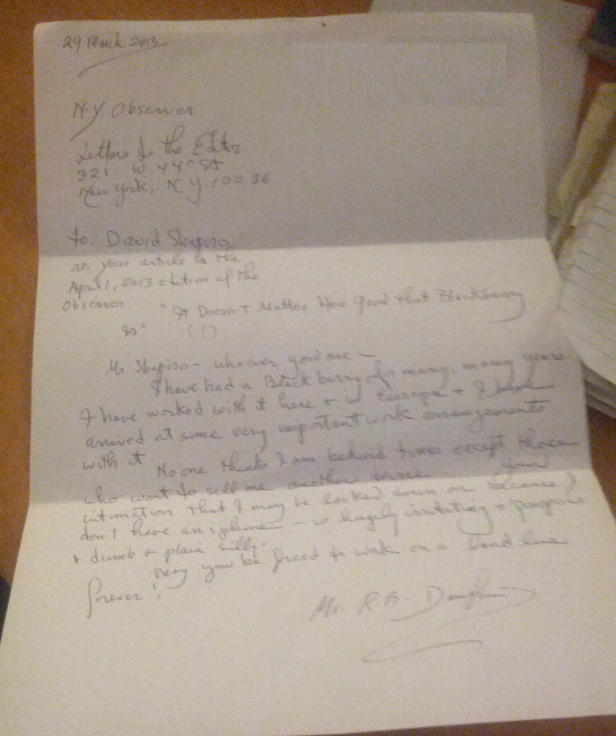 29 March 2013
N.Y. Observer
Letters to the Editor
321 W 44th St
New York, N.Y. 10036
to. David Shapiro
re. your article in the
April 1, 2013 edition of the
Observer "It Doesn't Matter How Good that Blackberry
Is" (!)
Mr Shapiro - whoever you are -
I have had a Blackberry for many, many years
I have worked with it here + in Europe + I have
arrived at some very important work arrangements
with it.
No one thinks I am behind times except those
who want to sell me another device. Your
intimation that I may be looked down on because I
don't have an iphone - is hugely irritating +
+ dumb + plain silly.
May you be forced to work on a land line
forever!
R